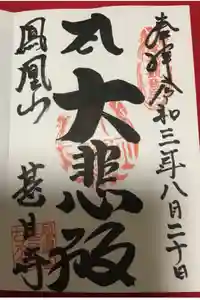 奉拝 令和三年八月二十日
大悲殿
鳳凰山
甚目寺